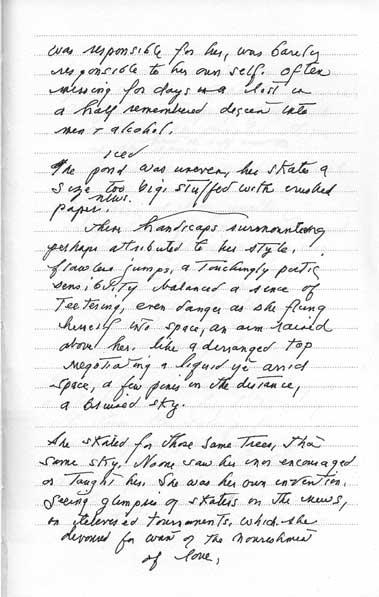 was responsible for her, was barely
responsible to her own self. Often
missing for days in a lost in
a half remembered descent into
men + alcohol.
iced
The pond was uneven, her skates a
size too big, stuffed with crushed
news.
paper.
These handicaps surmounting
perhaps attributed to her style.
flawless jumps, a touchingly poetic
sensibility balanced a sence of
teetering, even danger as she flung
herself into space, an arm raised
above her. like a deranged top
negotiating a liquid yet arrid
space, a few pines in the distance,
a bruised sky.
She skated for those same trees, that
same sky. No one saw her nor encouraged
or taught her. She was her own invention.
Seeing glimpses of skaters on the news,
on televised tournaments, which she
devoured for want of the nourishment
of love,